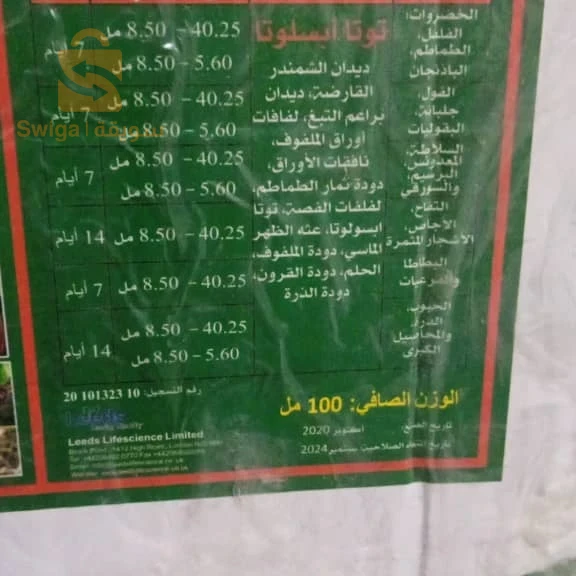 الخضروات:
الفلفل،
الطماطم،
الباذنجان
توتا أبسلوتا
40.25 – 8.50 مل
5.60 – 8.50 مل
7 أيام
الفول،
جلبانة،
البقوليات
40.25 – 8.50 مل
5.60 – 8.50 مل
7 أيام
السلاطة،
المعدنوس،
البرسيم،
والسورقي
40.25 – 8.50 مل
5.60 – 8.50 مل
7 أيام
التفاح،
الأجاص،
الأشجار المثمرة
40.25 – 8.50 مل
14 أيام
البطاطا
والقرعيات
40.25 – 8.50 مل
7 أيام
الحبوب،
الذرة،
والمحاصيل
الكبرى
40.25 – 8.50 مل
5.60 – 8.50 مل
14 أيام
ديدان الشمندر
القارضة، ديدان
براعم التبغ، لفافات
أوراق الملفوف،
نافقات الأوراق،
دودة ثمار الطماطم،
لفلفات الفصة، توتا
ابسولوتا، عثه الظهر
الماسي، دودة الملفوف،
الحلم، دودة القرون،
دودة الذرة
Swiga سويقة
الوزن الصافي: 100 مل
تاريخ الصنع: أكتوبر 2020
تاريخ انتهاء الصلاحية: سبتمبر 2024
رقم التسجيل: 10 101323 20
Leeds
Leeds Lifescience Limited